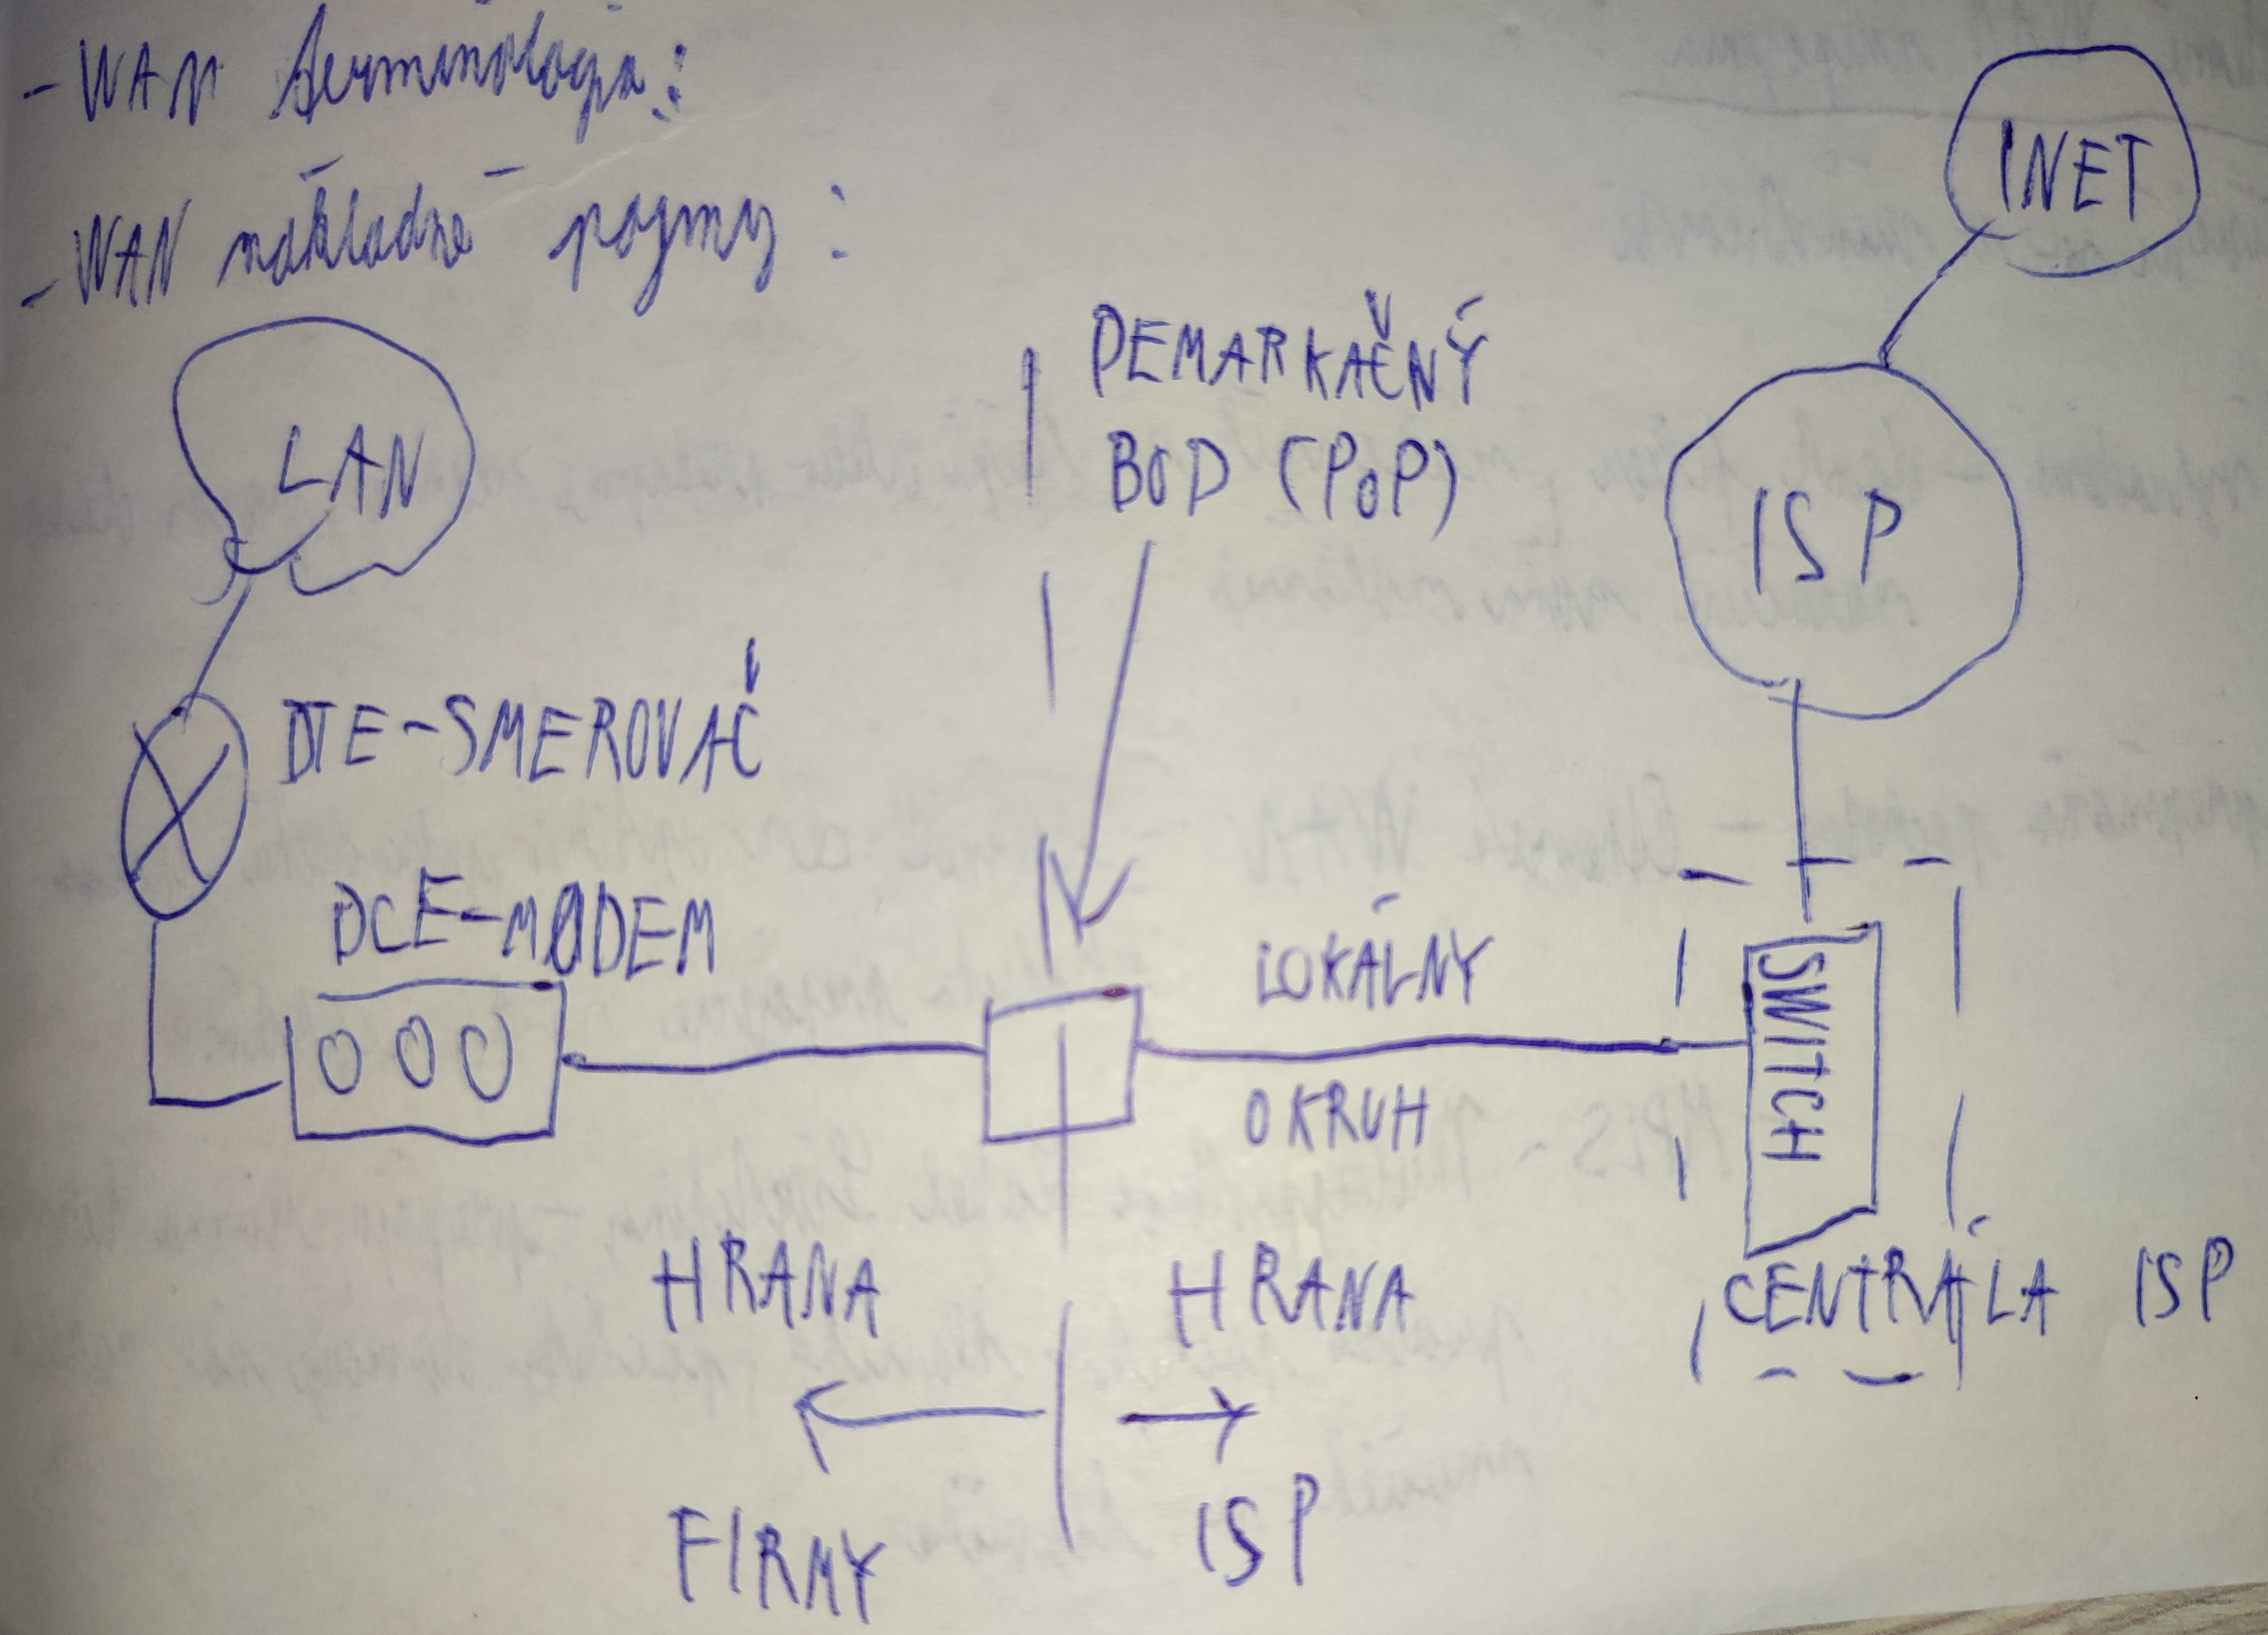 - WAN terminológia:
- WAN základné pojmy:
INET
LAN
DEMARKAČNÝ
BOD (PoP)
ISP
DTE-SMEROVAČ
DCE-MODEM
LOKÁLNY
OKRUH
SWITCH
HRANA
HRANA
CENTRÁLA ISP
FIRMY
ISP